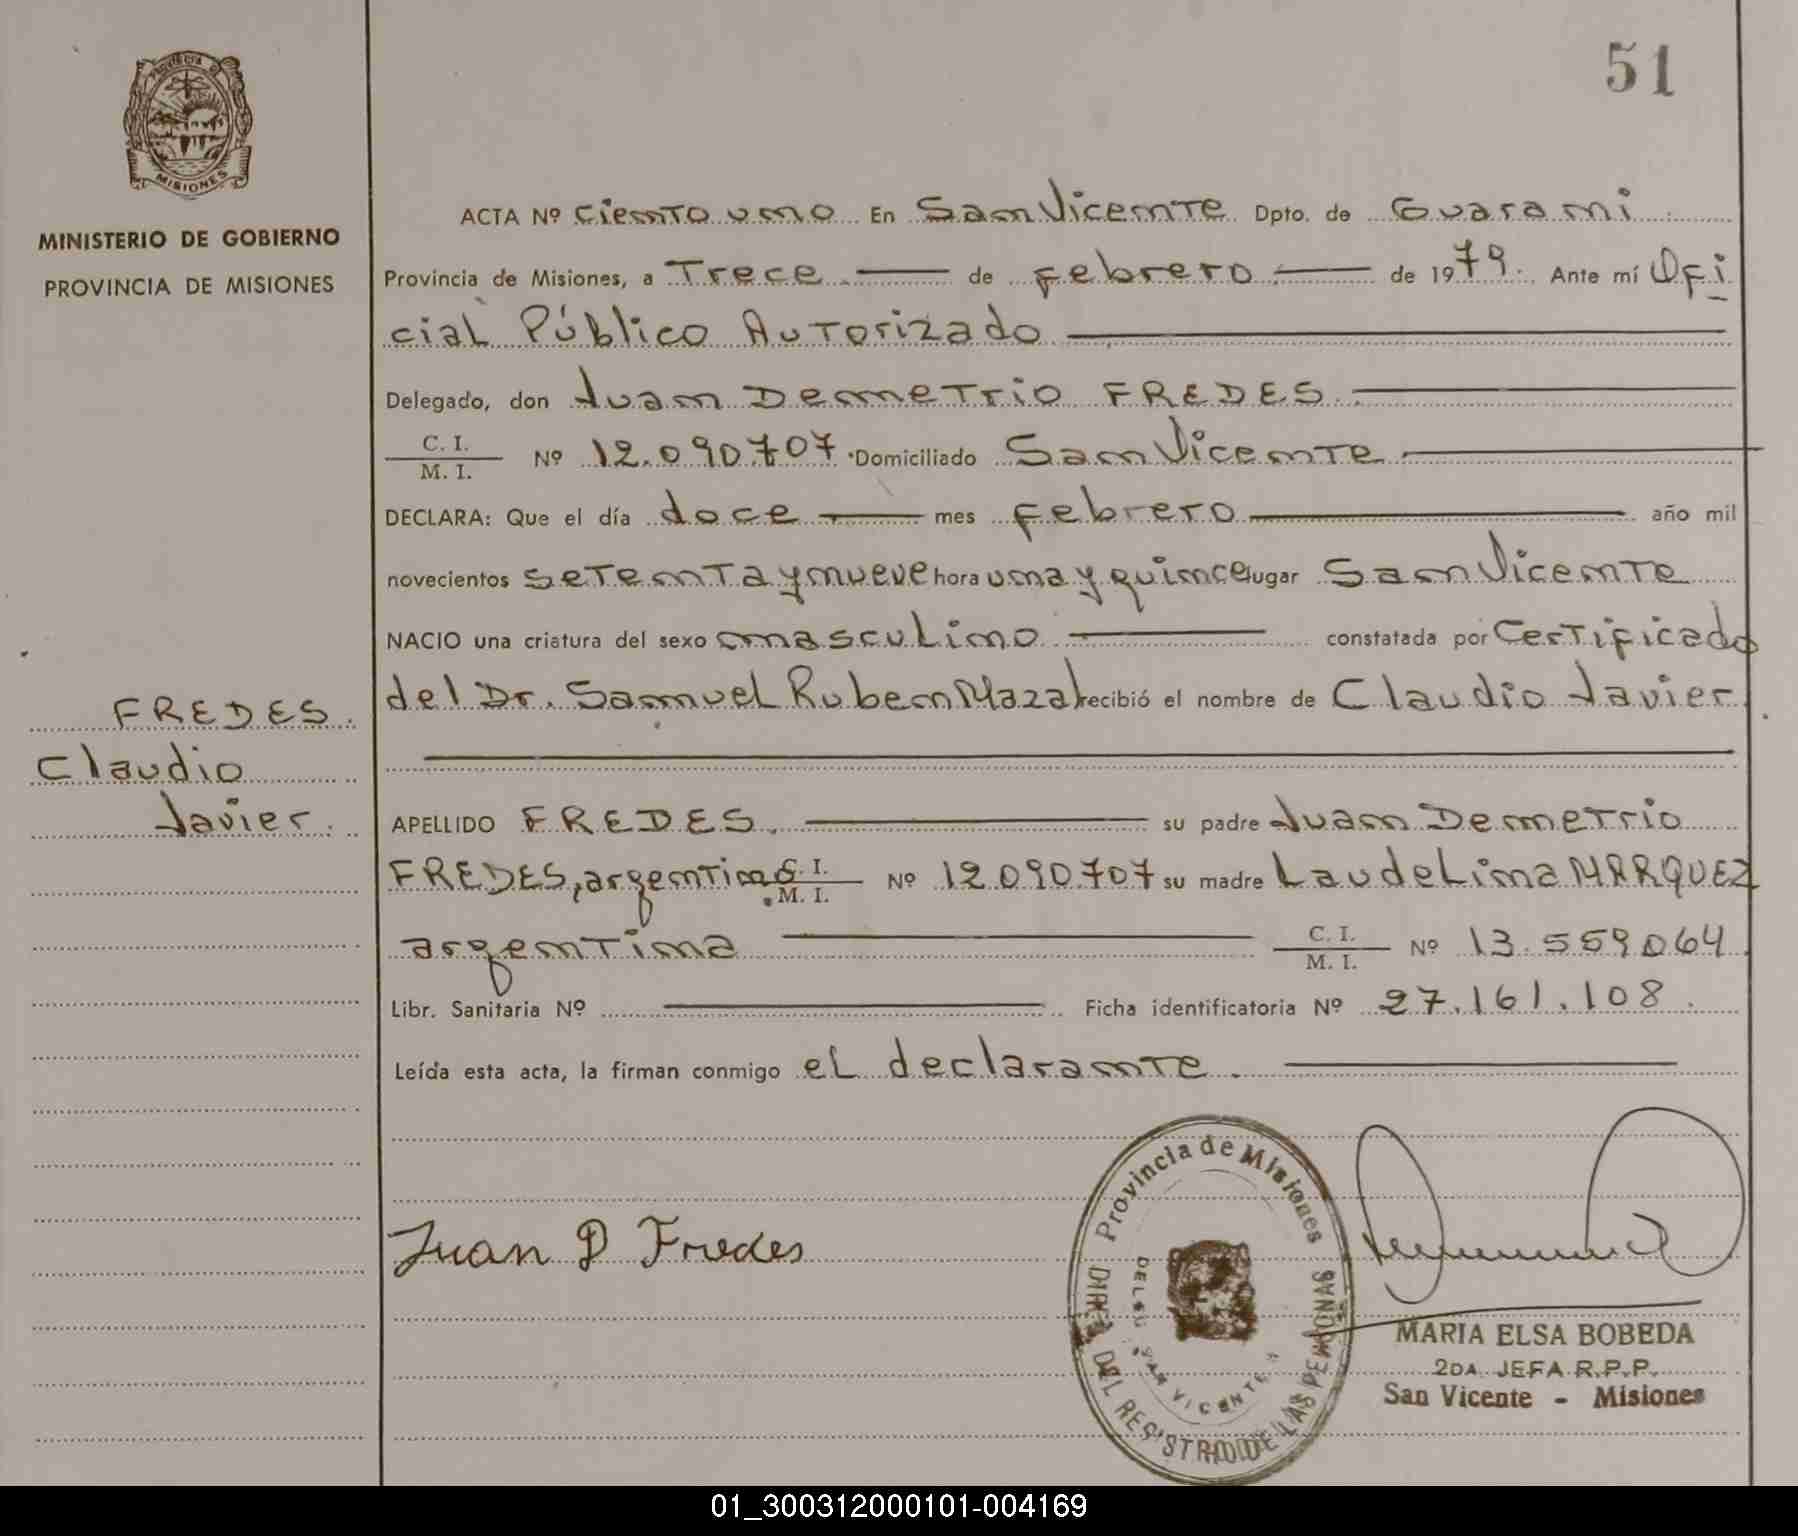 51
PROVINCIA DE
MISIONES
MINISTERIO DE GOBIERNO
PROVINCIA DE MISIONES
FREDES.
Claudio
Javier.
ACTA Nº Ciento uno En San Vicente Dpto. de Guarani
Provincia de Misiones, a Trece de febrero de 1979. Ante mí Ofi
cial Público Autorizado
Delegado, don Juan Demetrio FREDES.
C. I.
M. I. Nº 12.090.707. Domiciliado San Vicente
DECLARA: Que el día doce mes febrero año mil
novecientos setenta y nueve hora una y quince lugar San Vicente
NACIO una criatura del sexo masculino constatada por Certificado
del Dr. Samuel Ruben Mazal recibió el nombre de Claudio Javier.
APELLIDO FREDES. su padre Juan Demetrio
FREDES, argentino C. I.
M. I. Nº 12.090.707 su madre Laudelina MARQUEZ
argentina C. I.
M. I. Nº 13.559.064.
Libr. Sanitaria Nº Ficha identificatoria Nº 27.161.108.
Leída esta acta, la firman conmigo el declarante.
Juan D Fredes
Provincia de Misiones
DEL REGISTRO DE LAS PERSONAS
SAN VICENTE
MARIA ELSA BOBEDA
2DA. JEFA R.P.P.
San Vicente - Misiones
01_300312000101-004169